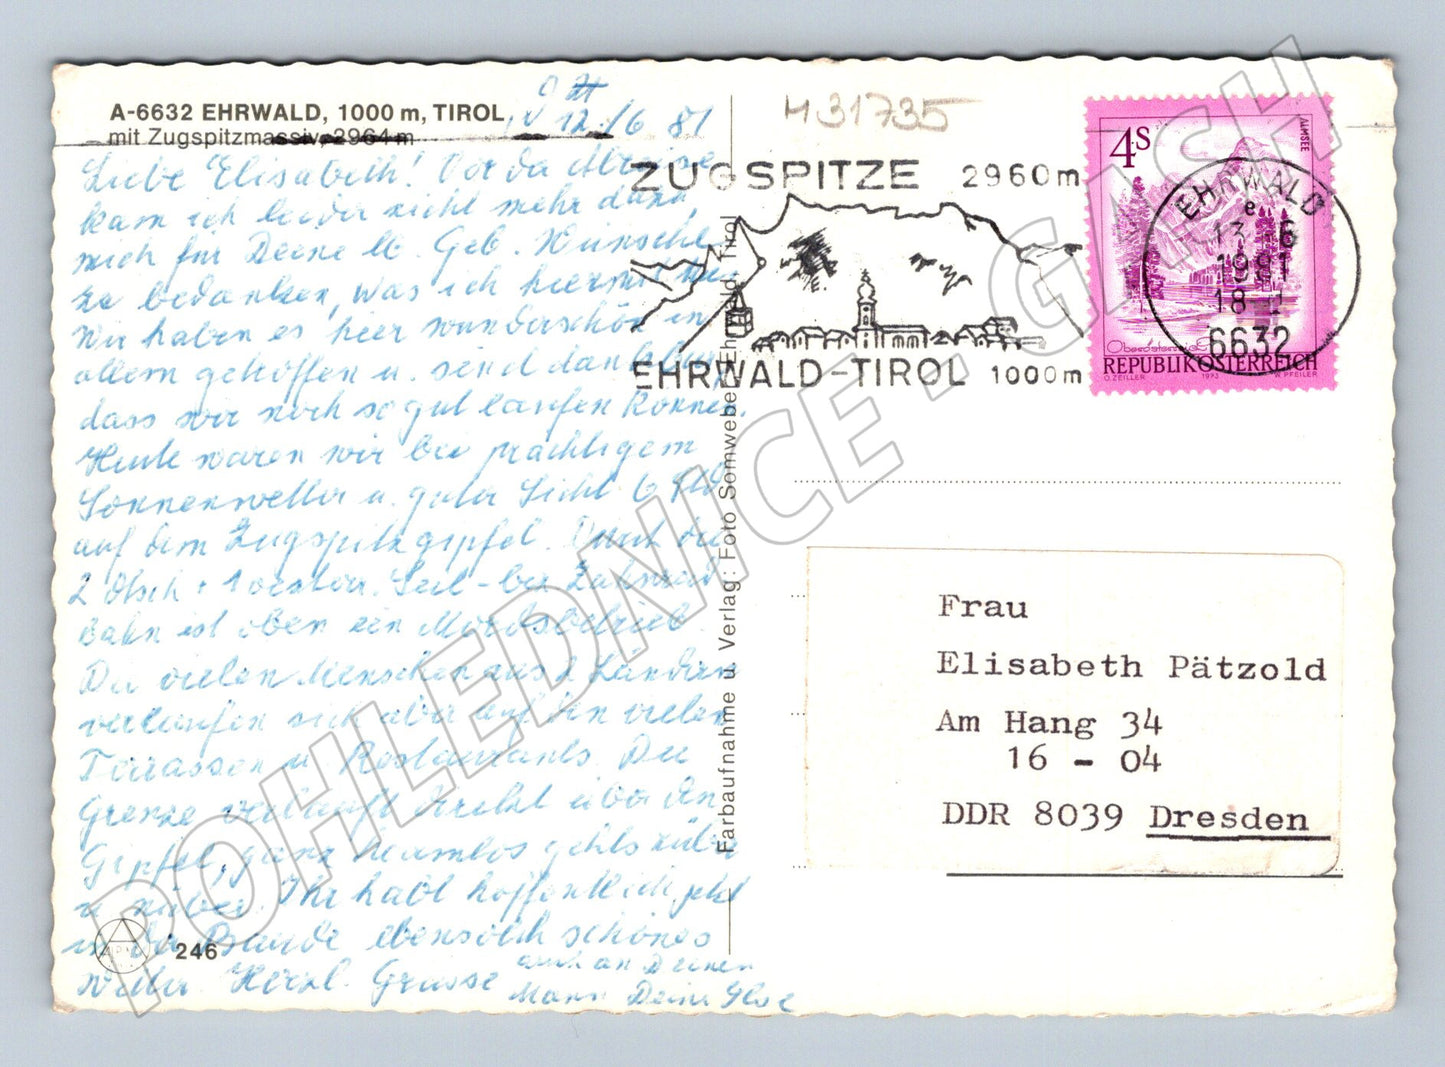 A-6632 EHRWALD, 1000 m, TIROL
mit Zugspitzmassiv, 2964 m
12./6 81
Liebe Elisabeth! Vor der Abreise
kam ich leider nicht mehr dazu,
mich für Deine lb. Geb. Wünsche
zu bedanken, was ich hiermit tue
Wir haben es hier wunderschön in
allem getroffen u. sind dankbar,
dass wir noch so gut laufen können.
Heute waren wir bei prächtigem
Sonnenwetter u. guter Sicht 6 Std
auf dem Zugspitzgipfel. Durch die
2 dtsch + 1 österr. Seil- bez Zahnrad
Bahn ist oben ein Mordsbetrieb
Die vielen Menschen aus 2 Ländern
verlaufen sich aber auf den vielen
Terrassen u. Restaurants. Die
Grenze verläuft direkt über den
Gipfel, ganz harmlos gehts rüber
u. nüber. Ihr habt hoffentlich jetzt
in der Baude ebensolch schönes
Wetter. Herzl. Grüsse auch an Deinen
Mann Deine Ilse
246
Farbaufnahme u. Verlag: Foto Somweber, Ehrwald, Tirol
H31735
ZUGSPITZE 2960 m
EHRWALD-TIROL 1000 m
4S
ALMSEE
Oberösterreich
REPUBLIK ÖSTERREICH
O. ZEILLER 1973 W. PFEILER
EHRWALD
e
13. 6
1981
18
6632
Frau
Elisabeth Pätzold
Am Hang 34
16 - 04
DDR 8039 Dresden
POHLEDNICE - GASH